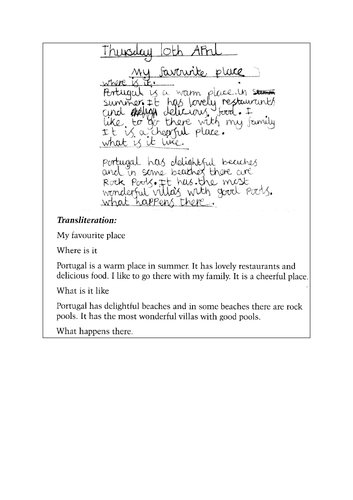 Thursday 10th April
My favourite place
where is it.
Portugal is a warm place.In
summer.It has lovely restaurants
and delicious food. I
like to do there with my family
It is a cheerful place.
what is it like.
Portugal has delightful beaches
and in some beaches there are
Rock Pools.It has.the most
wonderful villas with good Pools.
what happens there.
Transliteration:
My favourite place
Where is it
Portugal is a warm place in summer. It has lovely restaurants and
delicious food. I like to go there with my family. It is a cheerful place.
What is it like
Portugal has delightful beaches and in some beaches there are rock
pools. It has the most wonderful villas with good pools.
What happens there.